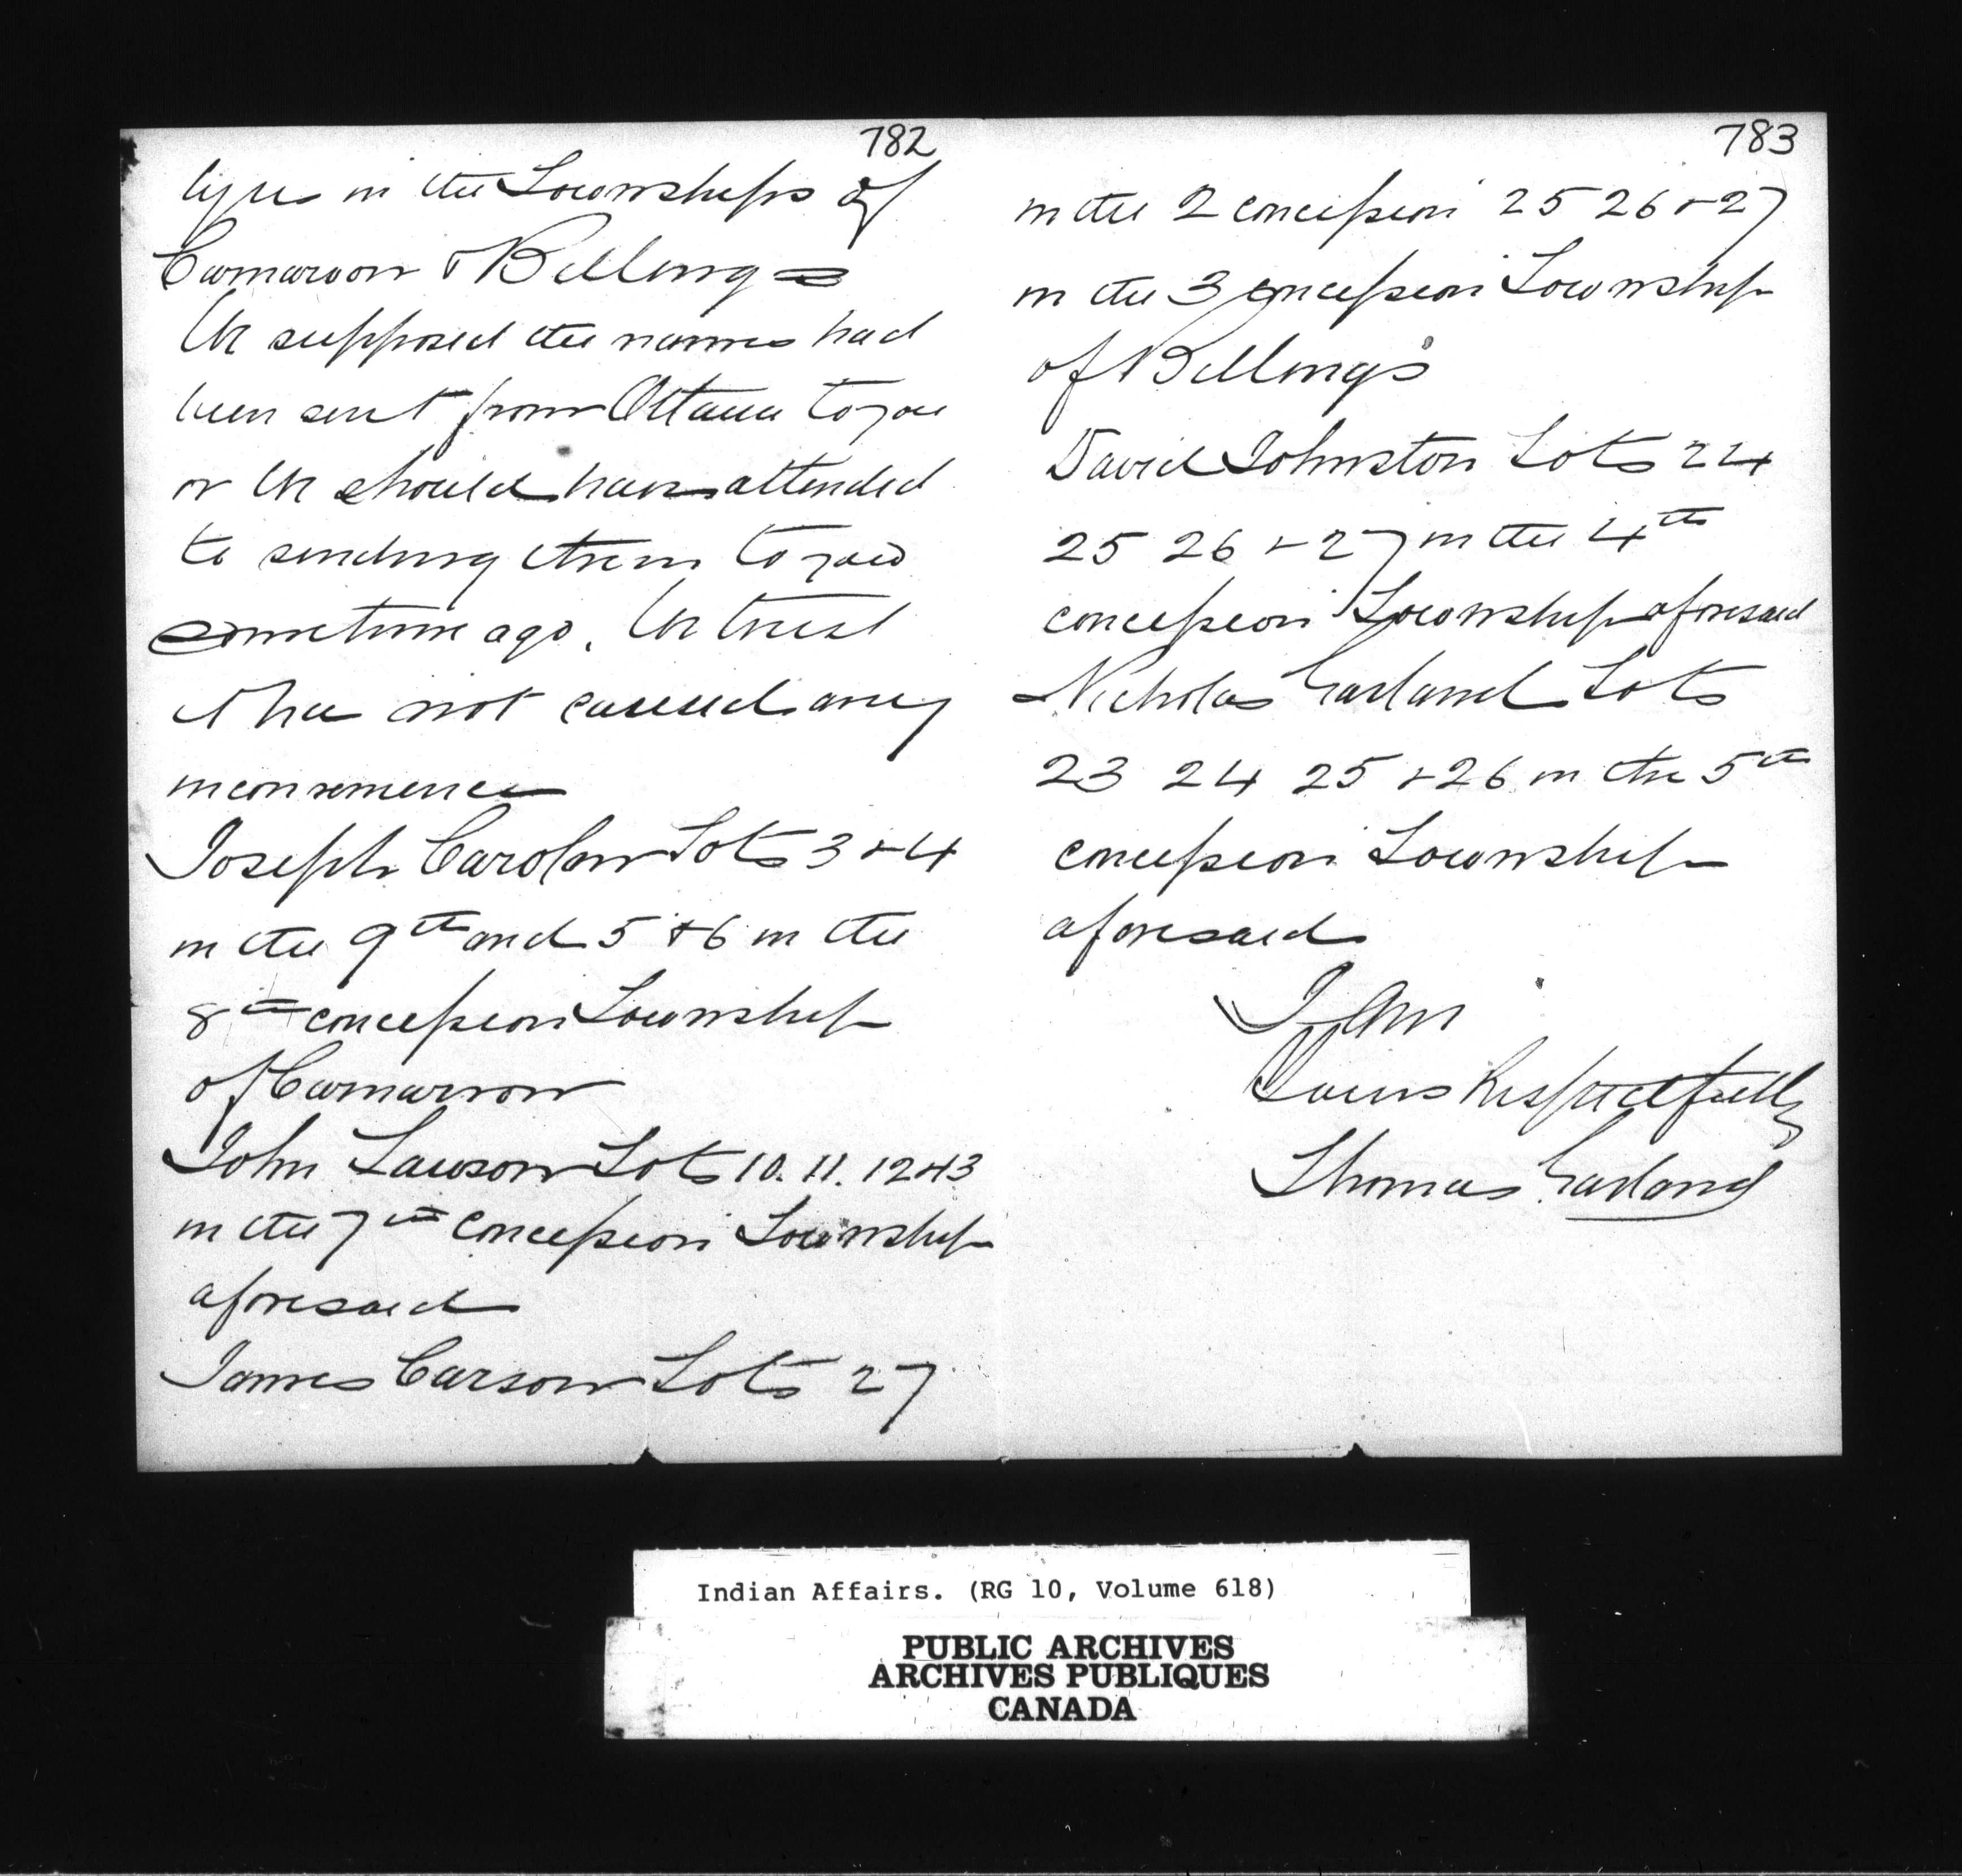 782
in the Townships of
Carnarvon & Billings
We supposed the names had
been sent from Ottawa to you
or We should have attended
to sending them to you
sometime ago. We trust
it has not caused any
inconvenience
Joseph Carolan Lots 3 & 4
in the 9th and 5 & 6 in the
8th concession Township
of Carnarvon
John Lawson Lots 10. 11. 12 & 13
in the 7th concession Township
aforesaid
James Carson Lots 27
783
in the 2 concession 25 26 & 27
in the 3 concession Township
of Billings
David Johnston Lots 24
25 26 & 27 in the 4th
concession Township aforesaid
Nicholas Garland Lots
23 24 25 & 26 in the 5th
concession Township
aforesaid
I am
Yours Respectfully
Thomas Garland
Indian Affairs. (RG 10, Volume 618)
PUBLIC ARCHIVES
ARCHIVES PUBLIQUES
CANADA